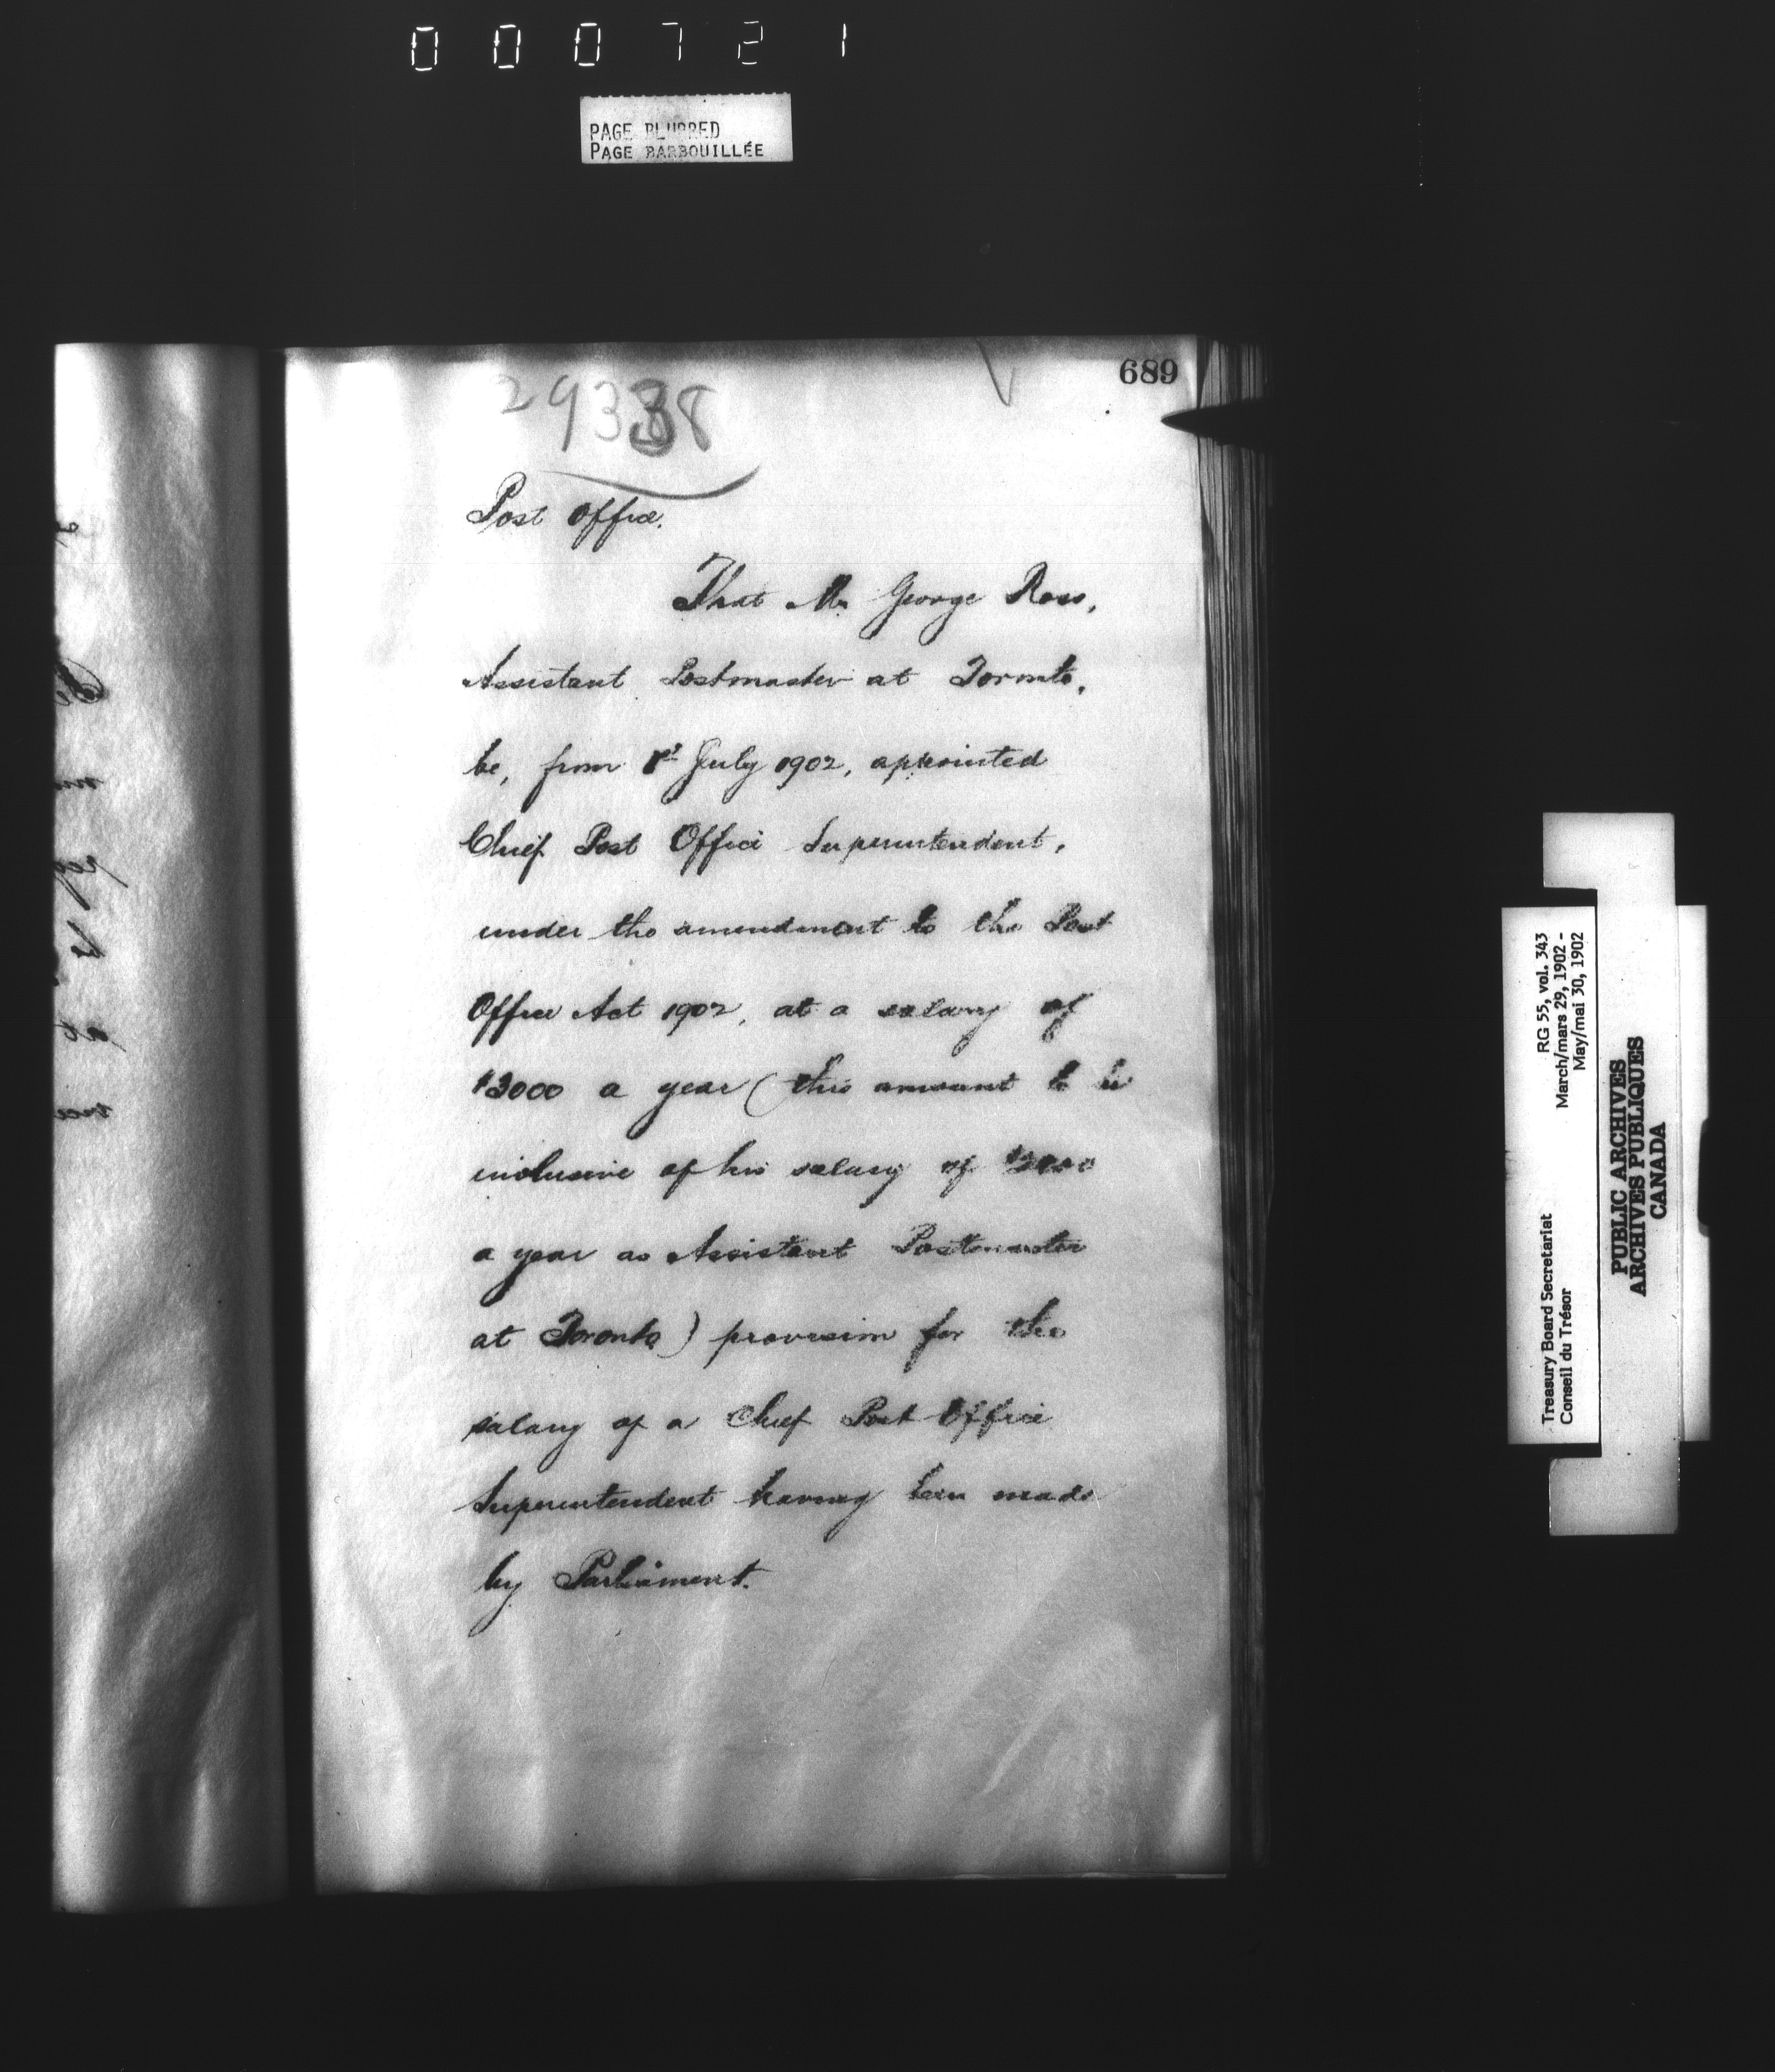 000721
PAGE BLURRED
PAGE BARBOUILLÉE
689
29338
Post Office.
That Mr George Ross,
Assistant Postmaster at Toronto,
be, from 1st July 1902, appointed
Chief Post Office Superintendent,
under the amendment to the Post
Office Act 1902, at a salary of
$3000 a year (this amount to be
inclusive of his salary of
a year as Assistant Postmaster
at Toronto) provision for the
salary of a Chief Post Office
Superintendent having been made
by Parliament.
RG 55, vol. 343
March/mars 29, 1902 -
May/mai 30, 1902
Treasury Board Secretariat
Conseil du Trésor
PUBLIC ARCHIVES
ARCHIVES PUBLIQUES
CANADA